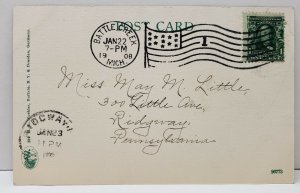 POST CARD
BATTLE CREEK
JAN 22
7-PM
1908
MICH.
1
Miss May M. Little,
300 Little Ave,
Ridgway,
Pennsylvania.
RIDGWAY
JAN 23
PM